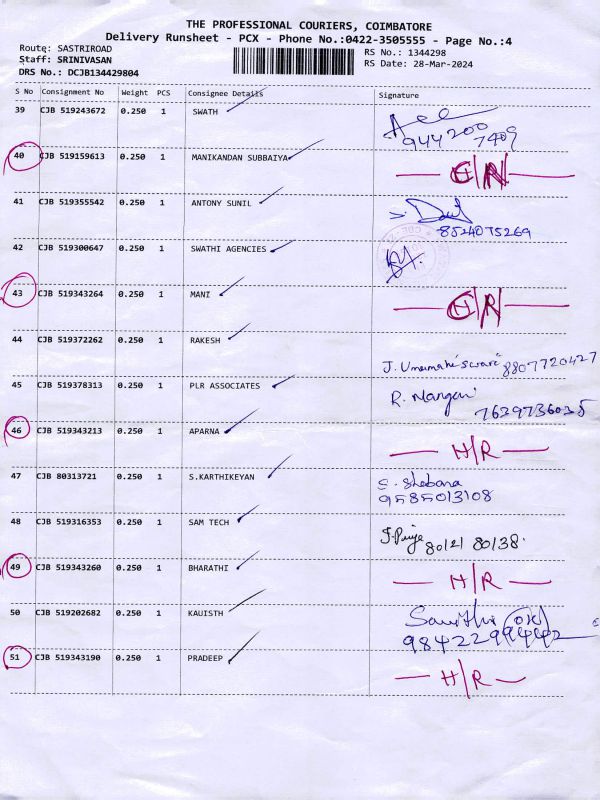 THE PROFESSIONAL COURIERS, COIMBATORE
Delivery Runsheet - PCX - Phone No.:0422-3505555 - Page No.:4
Route: SASTRIROAD
RS No.: 1344298
Staff: SRINIVASAN
RS Date: 28-Mar-2024
DRS No.: DCJB134429804
S No Consignment No Weight PCS Consignee Details Signature
39 CJB 519243672 0.250 1 SWATH
944200 7409
40 CJB 519159613 0.250 1 MANIKANDAN SUBBAIYA
41 CJB 519355542 0.250 1 ANTONY SUNIL
8524075269
42 CJB 519300647 0.250 1 SWATHI AGENCIES
43 CJB 519343264 0.250 1 MANI
44 CJB 519372262 0.250 1 RAKESH
J. Umamaheswari 8807720427
45 CJB 519378313 0.250 1 PLR ASSOCIATES
R. Mangai
7639736035
46 CJB 519343213 0.250 1 APARNA H/R
47 CJB 80313721 0.250 1 S.KARTHIKEYAN
S. Shobana
9585013108
48 CJB 519316353 0.250 1 SAM TECH
80121 80138
49 CJB 519343260 0.250 1 BHARATHI H/R
50 CJB 519202682 0.250 1 KAUISTH
Savithri (OK)
51 CJB 519343190 0.250 1 PRADEEP H/R